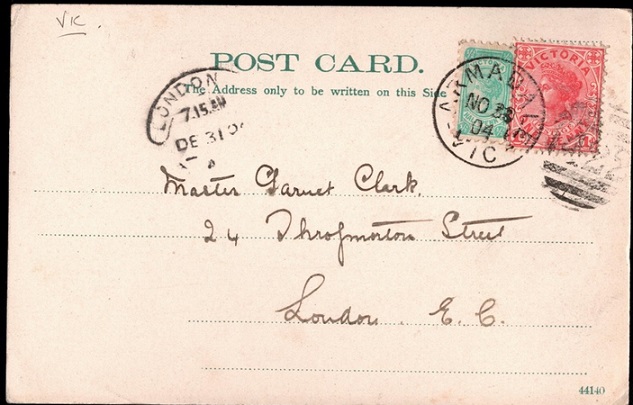 VIC.
POST CARD.
The Address only to be written on this Side
LONDON
7.15.AM
DE 31 04
VICTORIA
NO 28
04
VIC
Master Garnet Clark.
24 Throgmorton Street
London. E. C.
44140